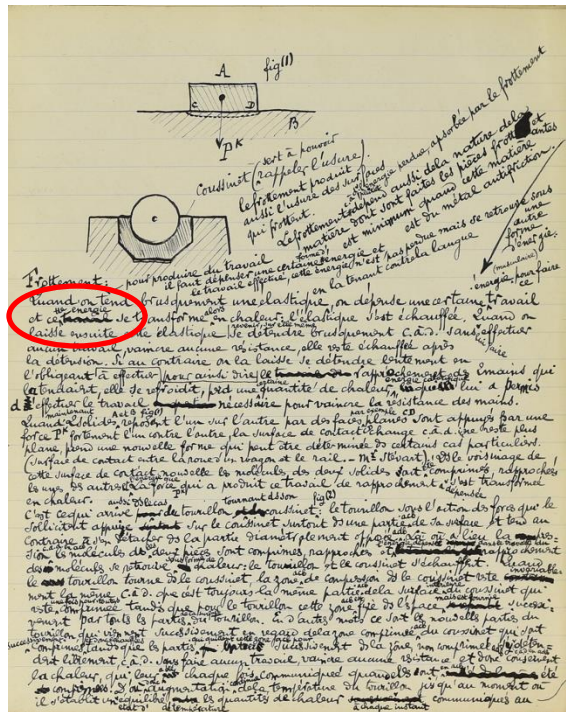 fig(1)
A
C D
B
P^K
Coussinet (sert à pouvoir
rappeler l'usure)
le frottement produit
aussi l'usure des surfaces
qui frottent.
énergie perdue, absorbée par le frottement
Le frottement dépend aussi de la nature de la
matière dont sont faites les pièces frottantes et
est minimum quand cette matière
est du métal antifriction.
c
Frottement; pour produire du travail
il faut dépenser une certaine énergie et
le travail effectué, cette énergie n'est pas perdue mais se retrouve sous
une
autre
forme
d'énergie.
en la tenant contre la langue
(musculaire)
énergie, pour faire
ce
Quand on tend brusquement une élastique, on dépense une certaine travail
énergie alors
et ce travail se transforme en chaleur: l'élastique s'est échauffée. Quand on
revenir sur elle même
laisse ensuite une élastique se détendre brusquement c.à.d. sans effectuer
lui faire
aucun travail, vaincre aucune résistance, elle reste échauffée après
la détension. Si au contraire on la laisse se détendre lentement en
l'obligeant à effectuer (pour ainsi dire) le rapprochement des mains qui
certaine énergie calorifique
la tendaient, elle se refroidit, perd une quantité de chaleur, qui lui a permis
d'effectuer le travail nécessaire pour vaincre la résistance des mains.
maintenant A et B fig(1) par exemple CD
Quand 2 solides, reposent l'un sur l'autre par des faces planes sont appuyés par une
force P^K fortement l'un contre l'autre, la surface de contact change c.à.d. ne reste plus
plane, prend une nouvelle forme qui peut être déterminée ds certains cas particuliers.
(surface de contact entre la roue d'un wagon et le rail. – Mr Stévart). Ds le voisinage de
cette surface de contact nouvelle les molécules des deux solides sont comprimées, rapprochées
énergie que
les unes des autres. La force qui a produit ce travail de rapprochement, s'est transformée
dépensée
en chaleur.
aussi ds le cas tournant ds son fig(2)
C'est ce qui arrive pour de tourillon coussinet: le tourillon sous l'action des forces qui le
sollicitent appuie sur le coussinet surtout ds une partie de sa surface et tend au
contraire à s'en détacher ds la partie diamétralement opposée. Là où a lieu la pres-
sion les molécules des deux pièces sont comprimées, rapprochées et rapprochement
des molécules se retrouve chaleur: le tourillon et le coussinet s'échauffent. Quand
invariable-
le tourillon tourne ds le coussinet, la zone de compression ds le coussinet reste
ment la même c.à.d. que c'est toujours la même partie de la surface du coussinet qui
reste comprimée tandis que pour le tourillon cette zone fixe ds l'espace, succes-
sivement par toutes les parties du tourillon. En d'autres mots ce sont de nouvelles parties du
tourillon qui viennent successivement en regard de la zone comprimée du coussinet qui sont
comprimées tandis que les parties successivement de la zone non comprimée se déten-
dent librement, c.à.d. sans faire aucun travail, vaincre aucune résistance et donc conservent
la chaleur, qui leur chaque fois communiquée quand elles ont été
comprimées. D'où augmentation de la température du tourillon jusqu'au moment où
il s'établit un équilibre les quantités de chaleur communiquées au
état d' température à chaque instant